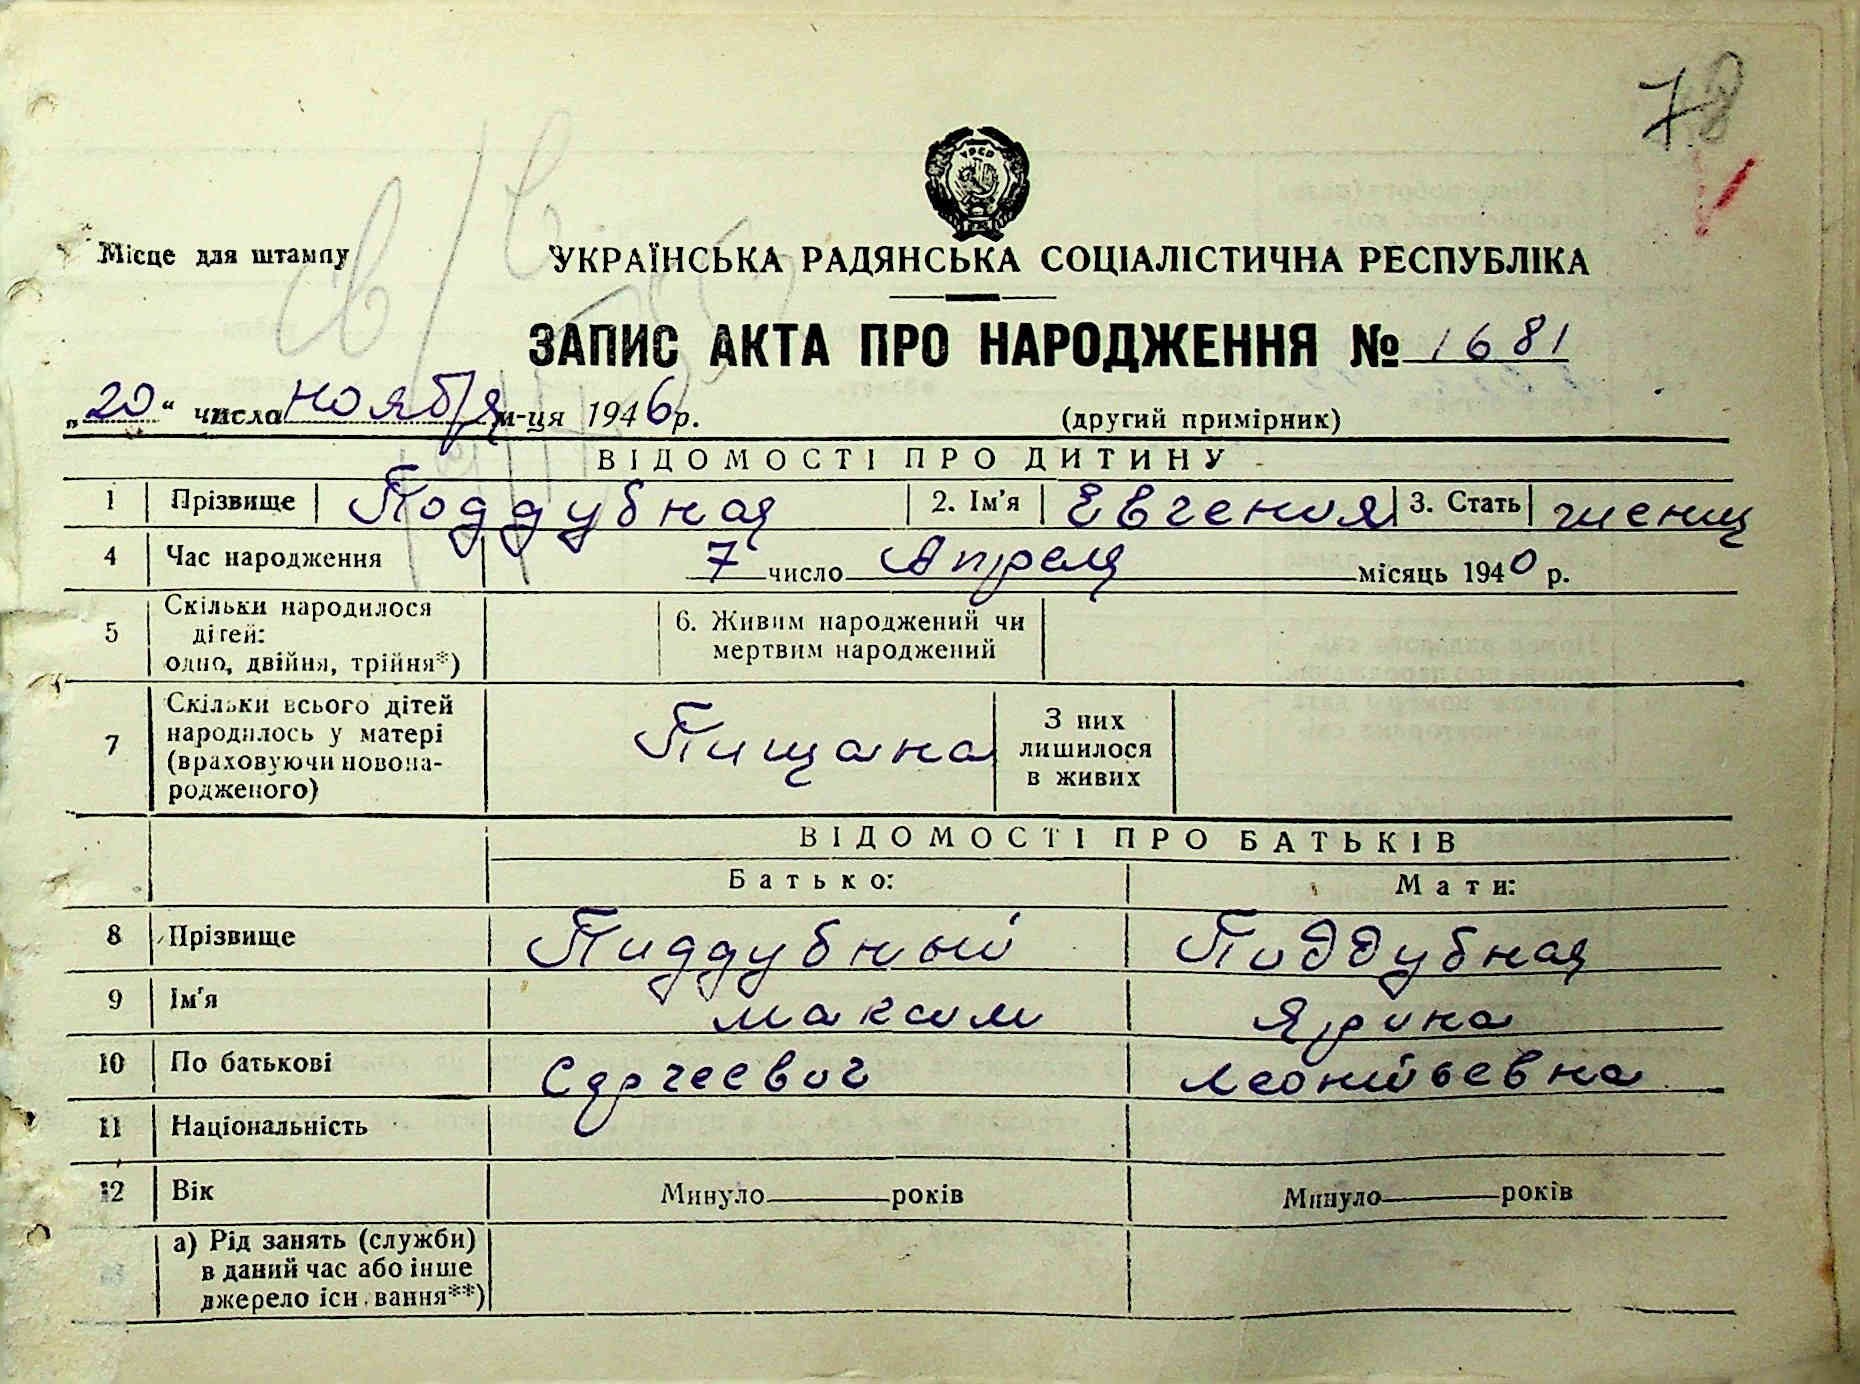 78
УРСР
Місце для штампу
УКРАЇНСЬКА РАДЯНСЬКА СОЦІАЛІСТИЧНА РЕСПУБЛІКА
ЗАПИС АКТА ПРО НАРОДЖЕННЯ № 1681
„20“ числа ноября м-ця 1946 р. (другий примірник)
ВІДОМОСТІ ПРО ДИТИНУ
1 Прізвище Поддубная 2. Ім'я Евгения 3. Стать женщ
4 Час народження 7 число Апреля місяць 1940 р.
5 Скільки народилося дітей: одно, двійня, трійня*) 6. Живим народжений чи мертвим народжений
7 Скільки всього дітей народилось у матері (враховуючи новонародженого) Пищана З них лишилося в живих
ВІДОМОСТІ ПРО БАТЬКІВ
Батько: Мати:
8 Прізвище Пиддубный Пиддубная
9 Ім'я Максим Ярина
10 По батькові Сергеевич Леонтьевна
11 Національність
12 Вік Минуло років Минуло років
а) Рід занять (служби) в даний час або інше джерело існування**)